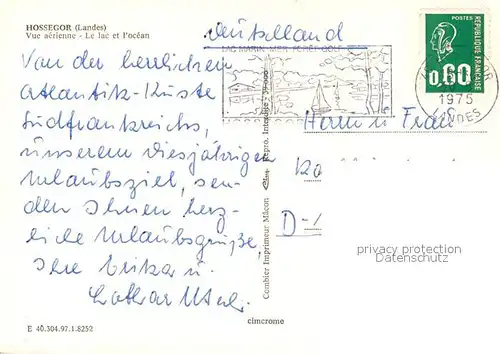 HOSSEGOR (Landes)
Vue aérienne - Le lac et l'océan
Deutschland
LAC MARIN-MER-FORÊT-GOLF
POSTES
REPUBLIQUE FRANÇAISE
0,60
1975
LANDES
Von der herrlichen
Atlantik-Küste
Südfrankreichs,
unserem diesjährigen
Urlaubsziel, sen-
den Ihnen herz-
liche Urlaubsgrüße,
Ihre Erika u.
Lothar
Herrn u. Frau
D-
Combier Imprimeur Mâcon
cimcrome
E 40.304.97.1.8252
privacy protection
Datenschutz